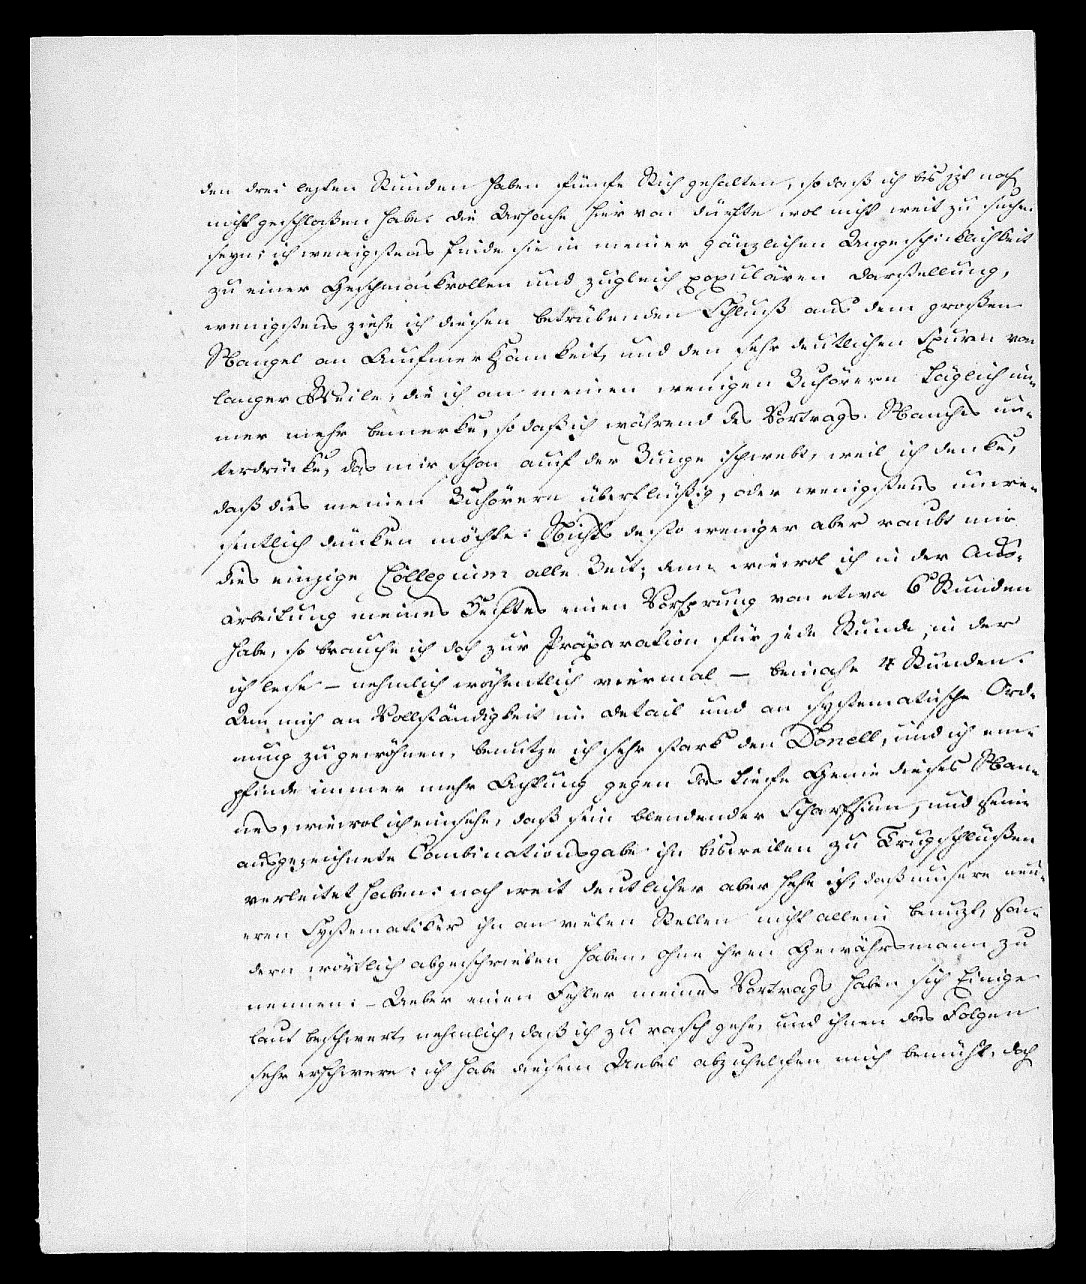 den drei lezten Stunden haben fünfe Stich gehalten, so daß ich bis jzt noch
nicht geschloßen habe. Die Ursache hier von dürfte wol nicht weit zu suchen
seyn: ich wenigstens finde sie in meiner gänzlichen Ungeschicklichkeit
zu einer Geschmackvollen und zugleich populären Darstellung,
wenigstens ziehe ich diesen betrübenden Schluß aus dem großen
Mangel an Aufmerksamkeit, und den sehr deutlichen Spuren von
langer Weile, die ich an meinen wenigen Zuhörern täglich im-
mer mehr bemerke, so daß ich während des Vortrags Manches un-
terdrücke, das mir schon auf der Zunge schwebt, weil ich denke,
daß dies meinen Zuhörern überflüßig, oder wenigstens unwe-
sentlich dünken möchte. Nichts desto weniger aber raubt mir
dies einzige Collegium alle Zeit; denn wiewol ich in der Aus-
arbeitung meines Heftes einen Vorsprung von etwa 6 Stunden
habe, so brauche ich doch zur Präparation für jede Stunde, in der
ich lese – nehmlich wöchentlich viermal –, beinahe 4 Stunden.
Um mich an Vollständigkeit im Detail und an systematische Ord-
nung zu gewöhnen, benutze ich sehr stark den Donell, und ich em-
pfinde immer mehr Achtung gegen das tiefe Genie dieses Man-
nes, wiewol ich einsehe, daß sein blendender Scharfsinn, und seine
ausgezeichnete Combinationsgabe ihn bisweilen zu Trugschlüßen
verleitet haben: noch weit deutlicher aber sehe ich, daß unsere neu-
eren Systematiker ihn an vielen Stellen nicht allein benuzt, son-
dern wörtlich abgeschrieben haben, ohne ihren Gewährsmann zu
nennen. – Ueber einen Fehler meines Vortrags haben sich Einige
laut beschwert, nehmlich, daß ich zu rasch gehe, und ihnen das Folgen
sehr erschwere: ich habe diesem Uebel abzuhelfen mich bemüht, doch